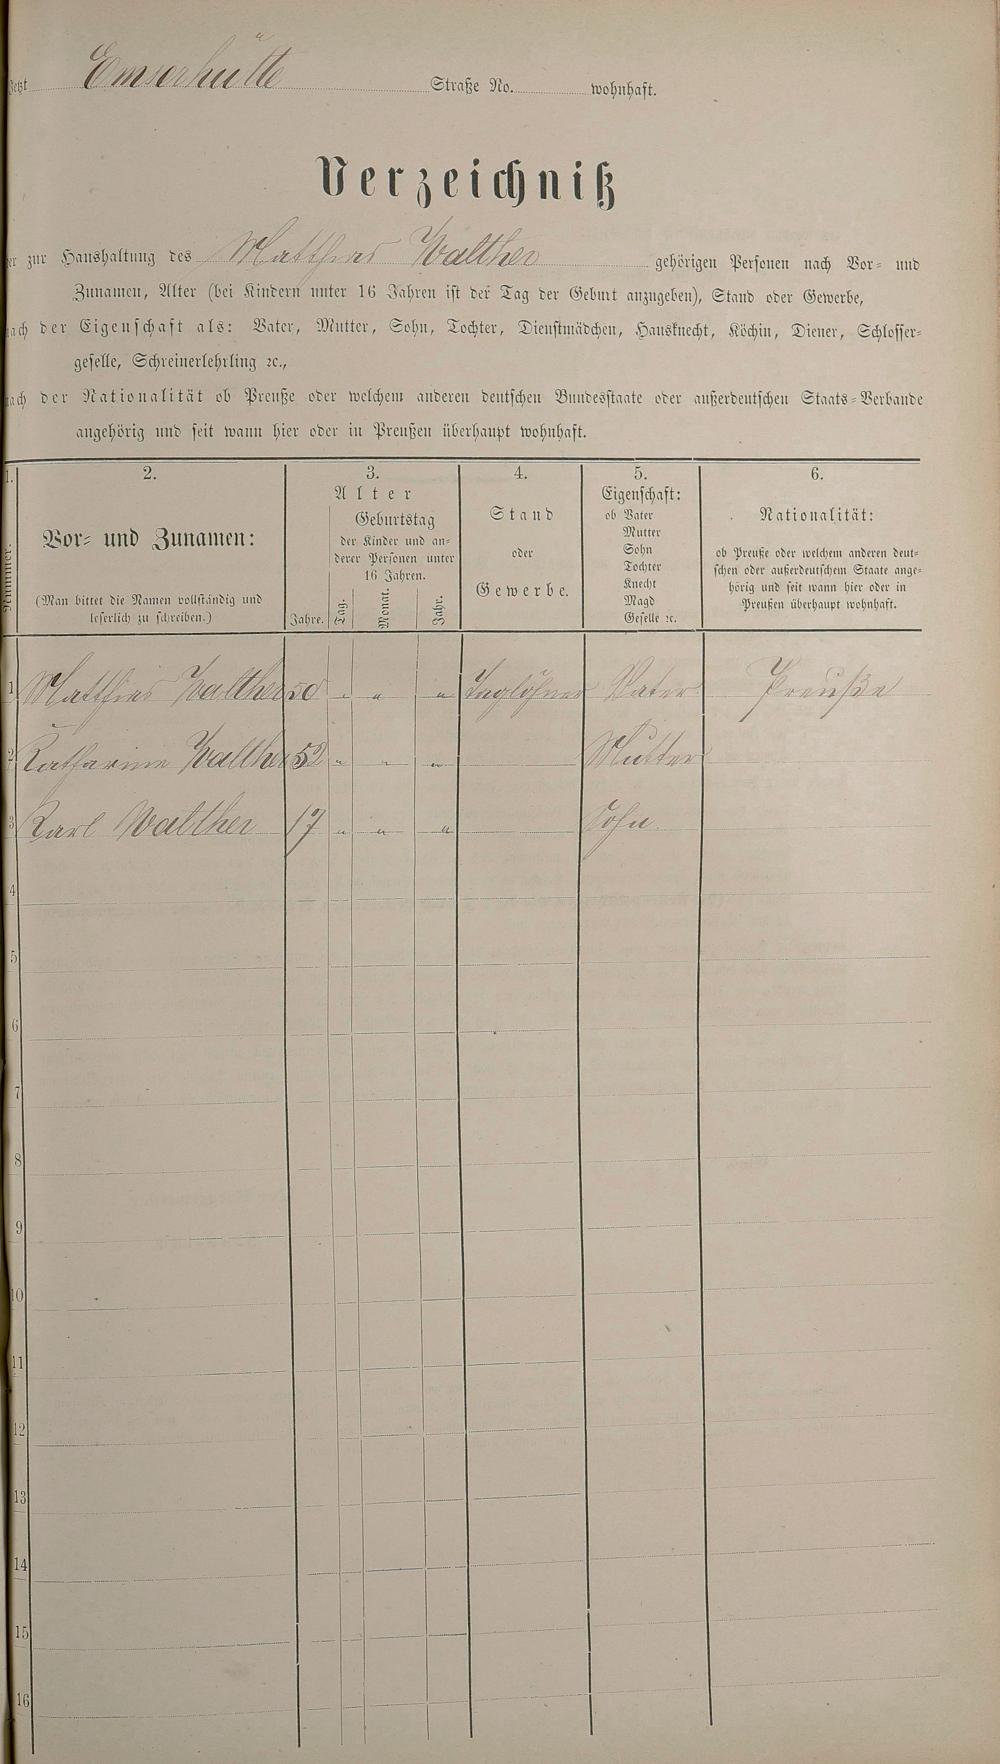 Jetzt Emserhütte Straße No. wohnhaft.
Verzeichniß
er zur Haushaltung des Matthias Walther gehörigen Personen nach Vor- und
Zunamen, Alter (bei Kindern unter 16 Jahren ist der Tag der Geburt anzugeben), Stand oder Gewerbe,
nach der Eigenschaft als: Vater, Mutter, Sohn, Tochter, Dienstmädchen, Hausknecht, Köchin, Diener, Schlosser-
geselle, Schreinerlehrling ꝛc.,
nach der Nationalität ob Preuße oder welchem anderen deutschen Bundesstaate oder außerdeutschen Staats-Verbande
angehörig und seit wann hier oder in Preußen überhaupt wohnhaft.
1. 2. 3. 4. 5. 6.
Nummer.
Vor- und Zunamen:
(Man bittet die Namen vollständig und
leserlich zu schreiben.)
Alter
Jahre.
Geburtstag
der Kinder und an-
derer Personen unter
16 Jahren.
Tag. Monat. Jahr.
Stand
oder
Gewerbe.
Eigenschaft:
ob Vater
Mutter
Sohn
Tochter
Knecht
Magd
Geselle ꝛc.
Nationalität:
ob Preuße oder welchem anderen deut-
schen oder außerdeutschem Staate ange-
hörig und seit wann hier oder in
Preußen überhaupt wohnhaft.
1 Matthias Walther 50 " " " Taglöhner Vater Preuße
2 Katharine Walther 52 " " " Mutter
3 Karl Walther 17 " " " Sohn
4
5
6
7
8
9
10
11
12
13
14
15
16